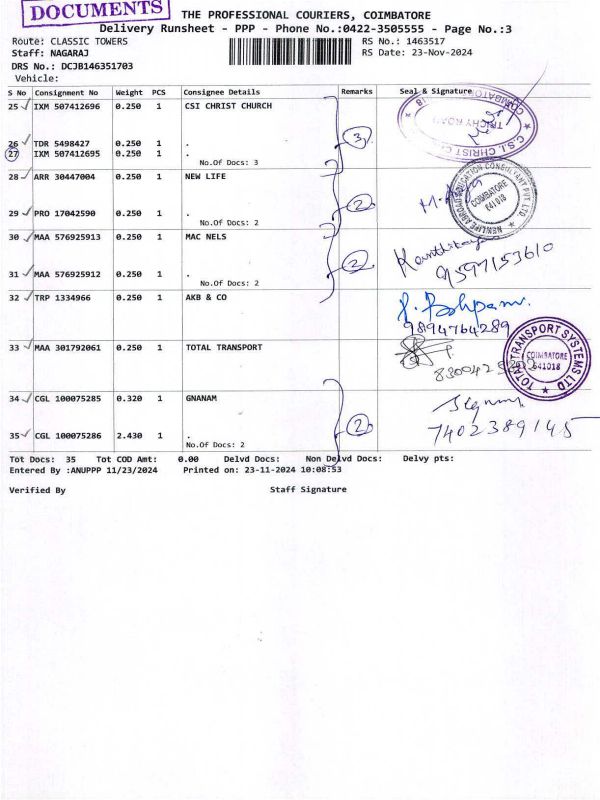 DOCUMENTS
THE PROFESSIONAL COURIERS, COIMBATORE
Delivery Runsheet - PPP - Phone No.:0422-3505555 - Page No.:3
Route: CLASSIC TOWERS RS No.: 1463517
Staff: NAGARAJ RS Date: 23-Nov-2024
DRS No.: DCJB146351703
Vehicle:
S No Consignment No Weight PCS Consignee Details Remarks Seal & Signature
25 IXM 507412696 0.250 1 CSI CHRIST CHURCH
C.S.I. CHRIST
TRICHY ROAD
COIMBATORE
18
26 TDR 5498427 0.250 1 .
3
27 IXM 507412695 0.250 1 .
No.Of Docs: 3
28 ARR 30447004 0.250 1 NEW LIFE
NEWLIFE ABROAD EDUCATION CONSULTANT PVT LTD
COIMBATORE
641 018
2
29 PRO 17042590 0.250 1 .
No.Of Docs: 2
30 MAA 576925913 0.250 1 MAC NELS
9597153610
2
31 MAA 576925912 0.250 1 .
No.Of Docs: 2
32 TRP 1334966 0.250 1 AKB & CO
9894764289
33 MAA 301792061 0.250 1 TOTAL TRANSPORT
TOTAL TRANSPORT SYSTEMS LTD
COIMBATORE
641018
34 CGL 100075285 0.320 1 GNANAM
2
7402389145
35 CGL 100075286 2.430 1 .
No.Of Docs: 2
Tot Docs: 35 Tot COD Amt: 0.00 Delvd Docs: Non Delvd Docs: Delvy pts:
Entered By :ANUPPP 11/23/2024 Printed on: 23-11-2024 10:08:53
Verified By Staff Signature